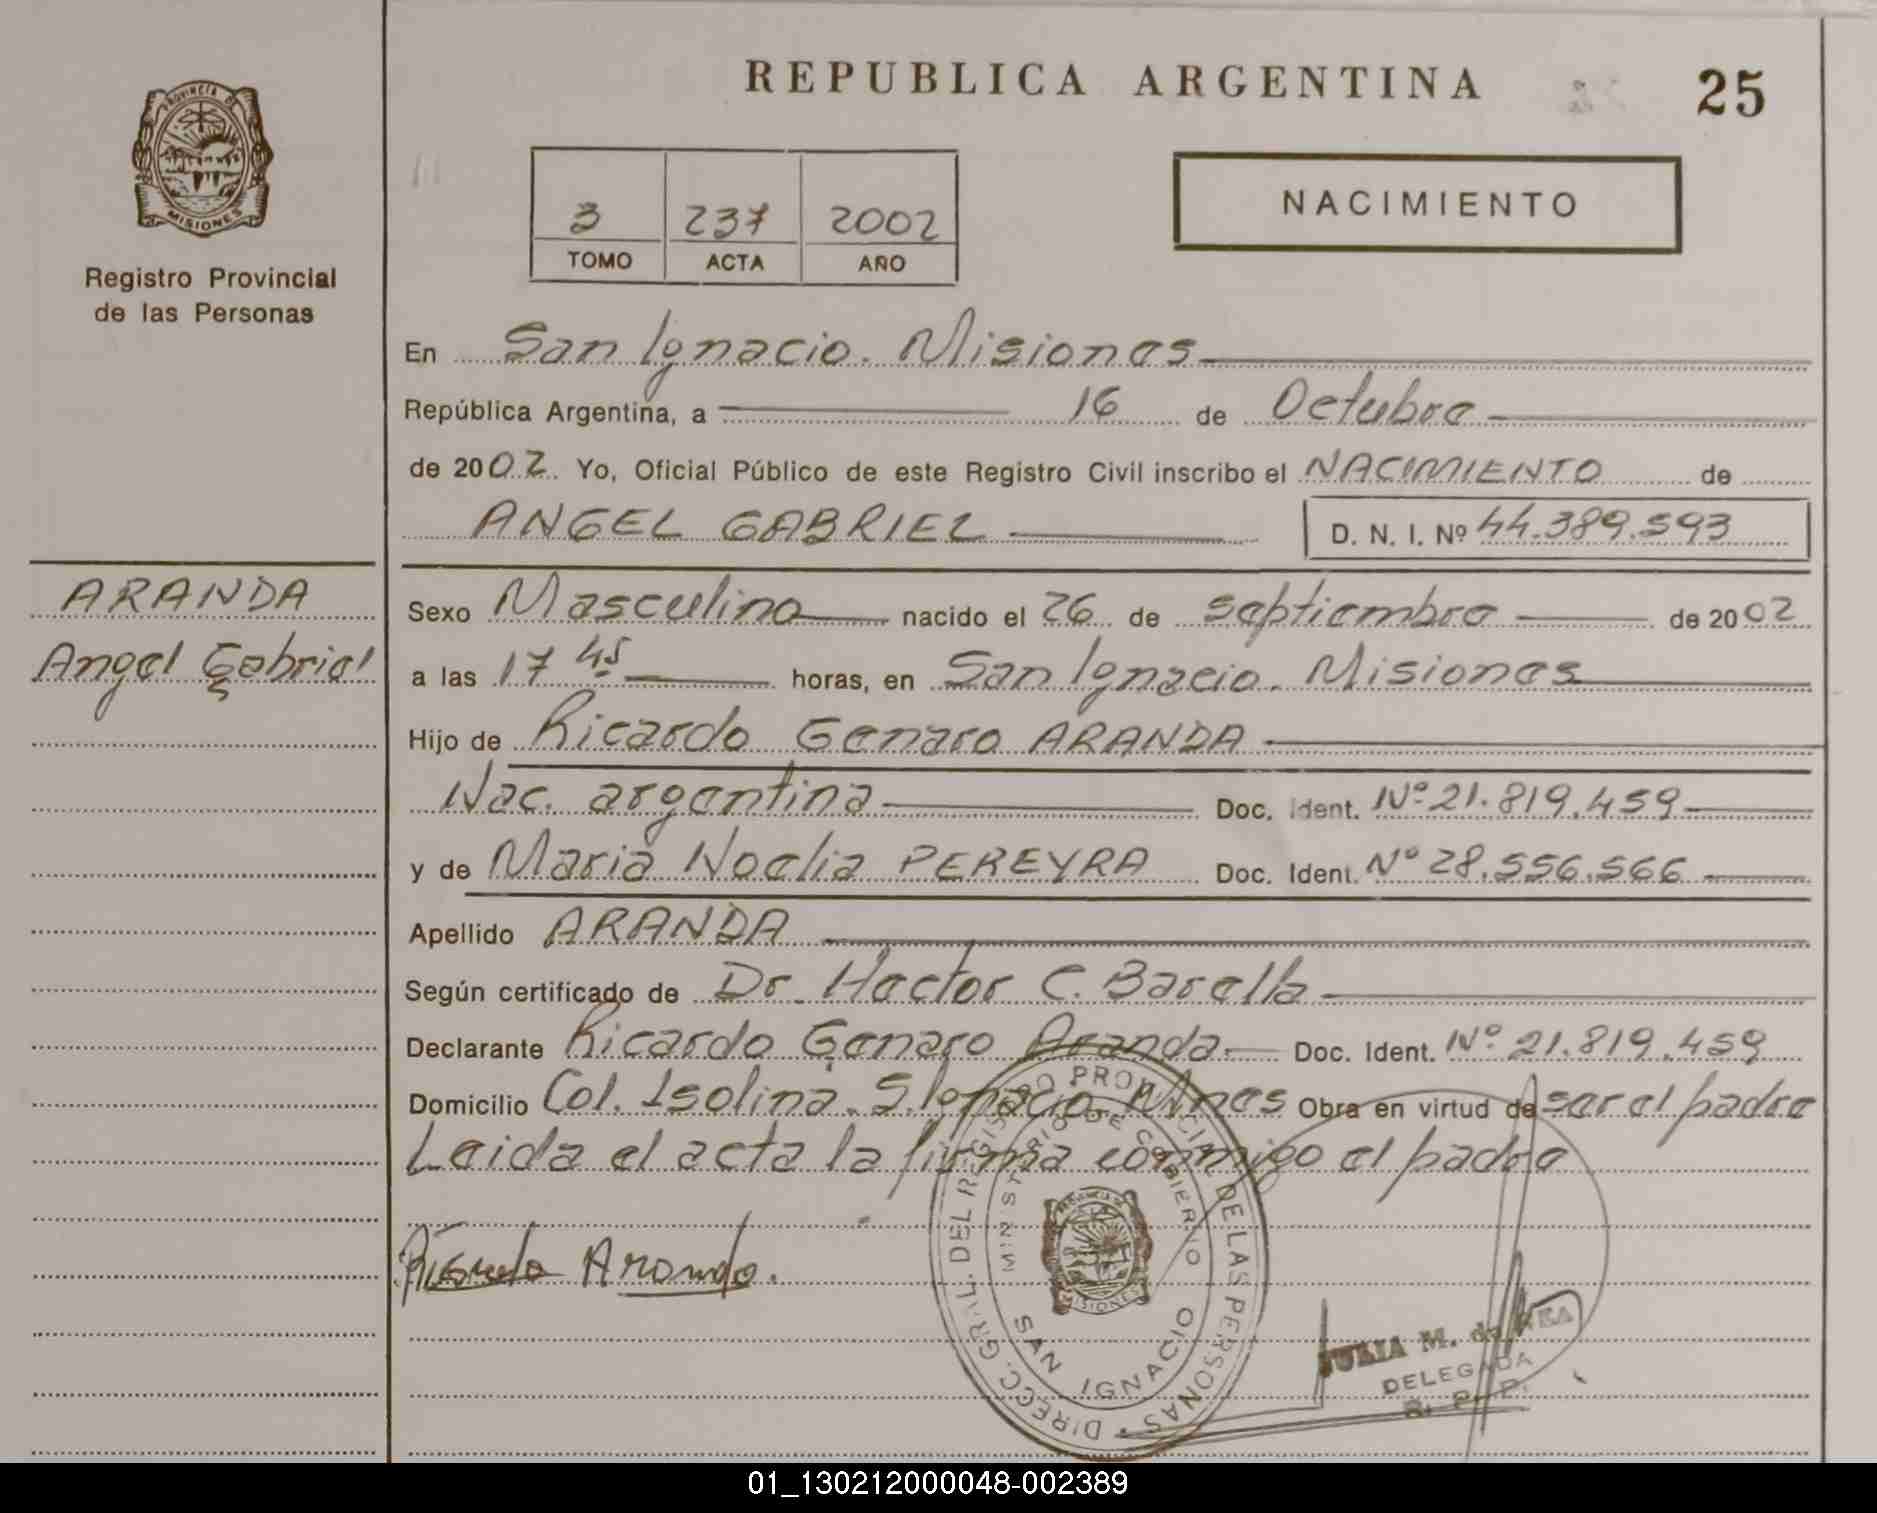 REPUBLICA ARGENTINA
25
PROVINCIA DE
MISIONES
Registro Provincial
de las Personas
3 237 2002
TOMO ACTA AÑO
NACIMIENTO
En San Ignacio. Misiones
República Argentina, a 16 de Octubre
de 2002. Yo, Oficial Público de este Registro Civil inscribo el NACIMIENTO de
ANGEL GABRIEL D. N. I. Nº 44.389.593
ARANDA
Angel Gabriel
Sexo Masculino nacido el 26 de septiembre de 2002
a las 17 45 horas, en San Ignacio. Misiones
Hijo de Ricardo Genaro ARANDA
Nac. argentina Doc. Ident. Nº 21.819.459
y de Maria Noelia PEREYRA Doc. Ident. Nº 28.556.566
Apellido ARANDA
Según certificado de Dr. Hector C. Barella
Declarante Ricardo Genaro Aranda Doc. Ident. Nº 21.819.459
Domicilio Col. Isolina. S. Ignacio Mnes Obra en virtud de ser el padre
Leida el acta la firma conmigo el padre
Ricardo Aranda.
DIRECC. GRAL. DEL REGISTRO PROVINCIAL DE LAS PERSONAS
MINISTERIO DE GOBIERNO
SAN IGNACIO
MISIONES
JULIA M. de
DELEGADA
R. P. P.
01_130212000048-002389